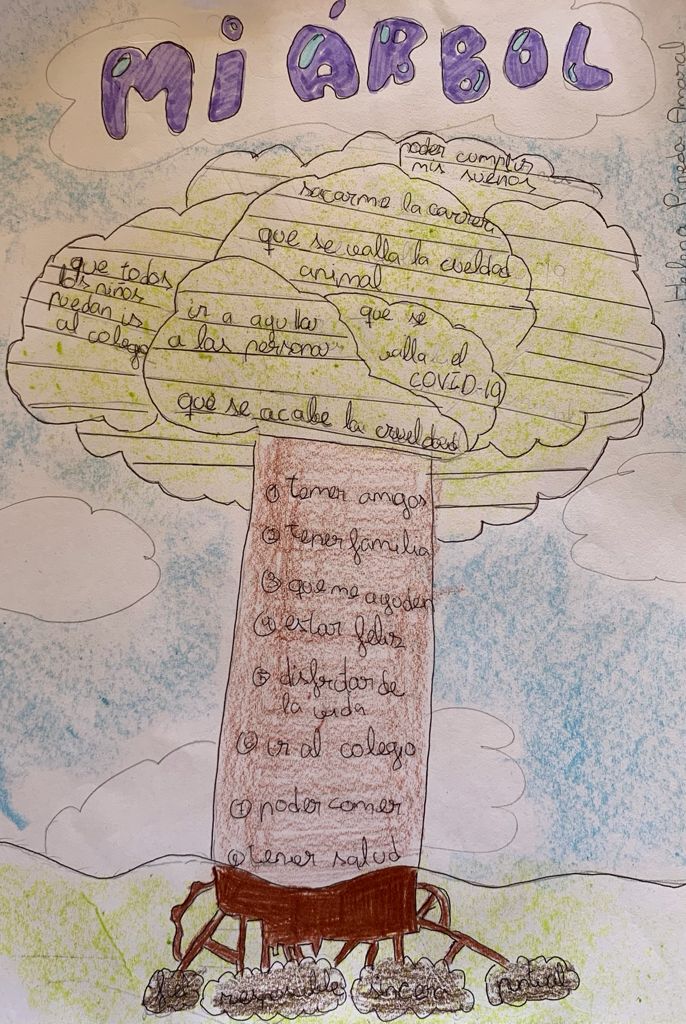 MI ÁRBOL
Helena Pineda Amaral
poder cumplir
mis sueños
sacarme la carrera
que se valla la cueldad
animal
que todos
los niños
puedan ir
al colegio
ir a aqullar
a las persona
que se
valla el
COVID-19
que se acabe la crueldad
① tener amigos
② tener familia
③ que me ayuden
④ estar feliz
⑤ disfrtar de
la vida
⑥ ir al colegio
⑦ poder comer
⑧ tener salud
responsable
sincera
puntual